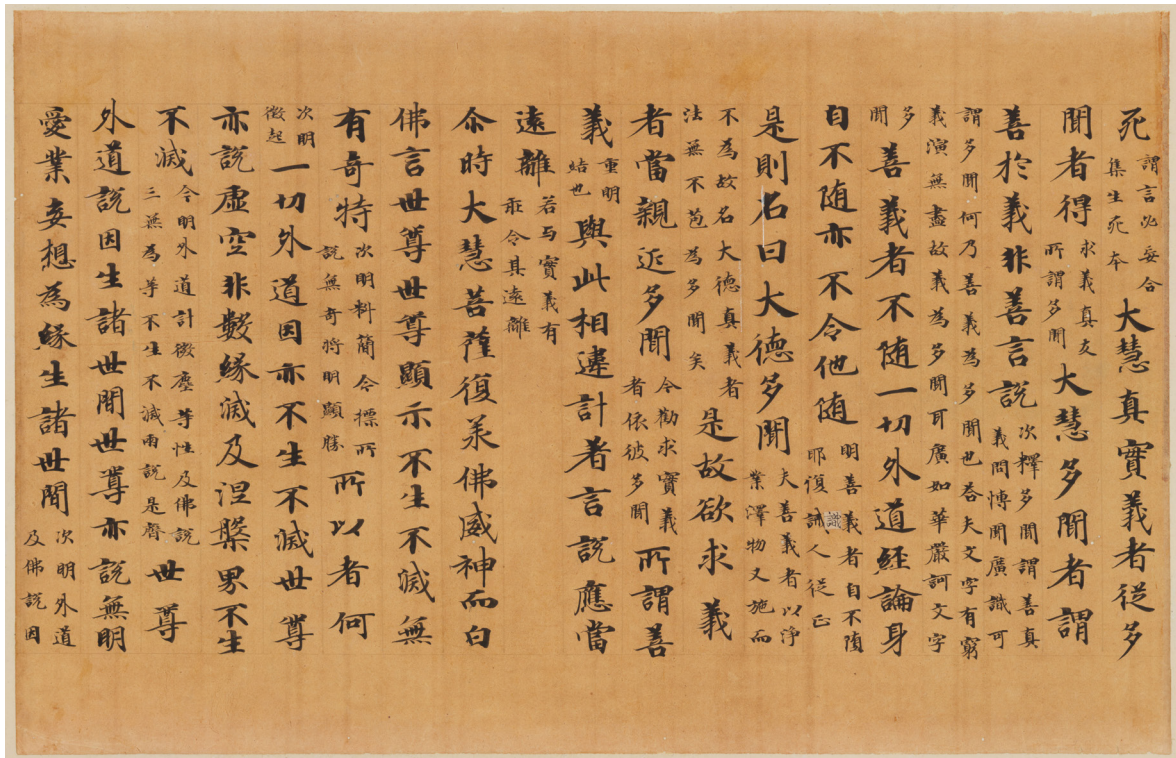 死謂言必妄合集生死本大慧真實義者從多
聞者得求義真友所謂多聞大慧多聞者謂
善於義非善言說次釋多聞謂善真義問愽聞廣識可
謂多聞何乃善義為多聞也荅夫文字有窮
義演無盡故義為多聞耳廣如華嚴訶文字
多聞善義者不随一切外道經論身
自不随亦不令他随明善義者自不随耶復誡人從正
是則名曰大德多聞夫善義者以浄業澤物又施而
不為故名大德真義者法無不苞為多聞矣是故欲求義
者當親近多聞令勸求實義者依彼多聞所謂善
義重明結也與此相違計著言說應當
遠離若与實義有乖令其遠離
尒時大慧菩薩復羕佛威神而白
佛言世尊世尊顯示不生不滅無
有奇特次明料簡令標所說無奇將明顯勝所以者何
次明徵起一切外道因亦不生不滅世尊
亦說虛空非數緣滅及涅槃界不生
不滅今明外道計微塵等性及佛說三無為等不生不滅雨說是齊世尊
外道說因生諸世間世尊亦說無明
愛業妄想為緣生諸世間次明外道及佛說因